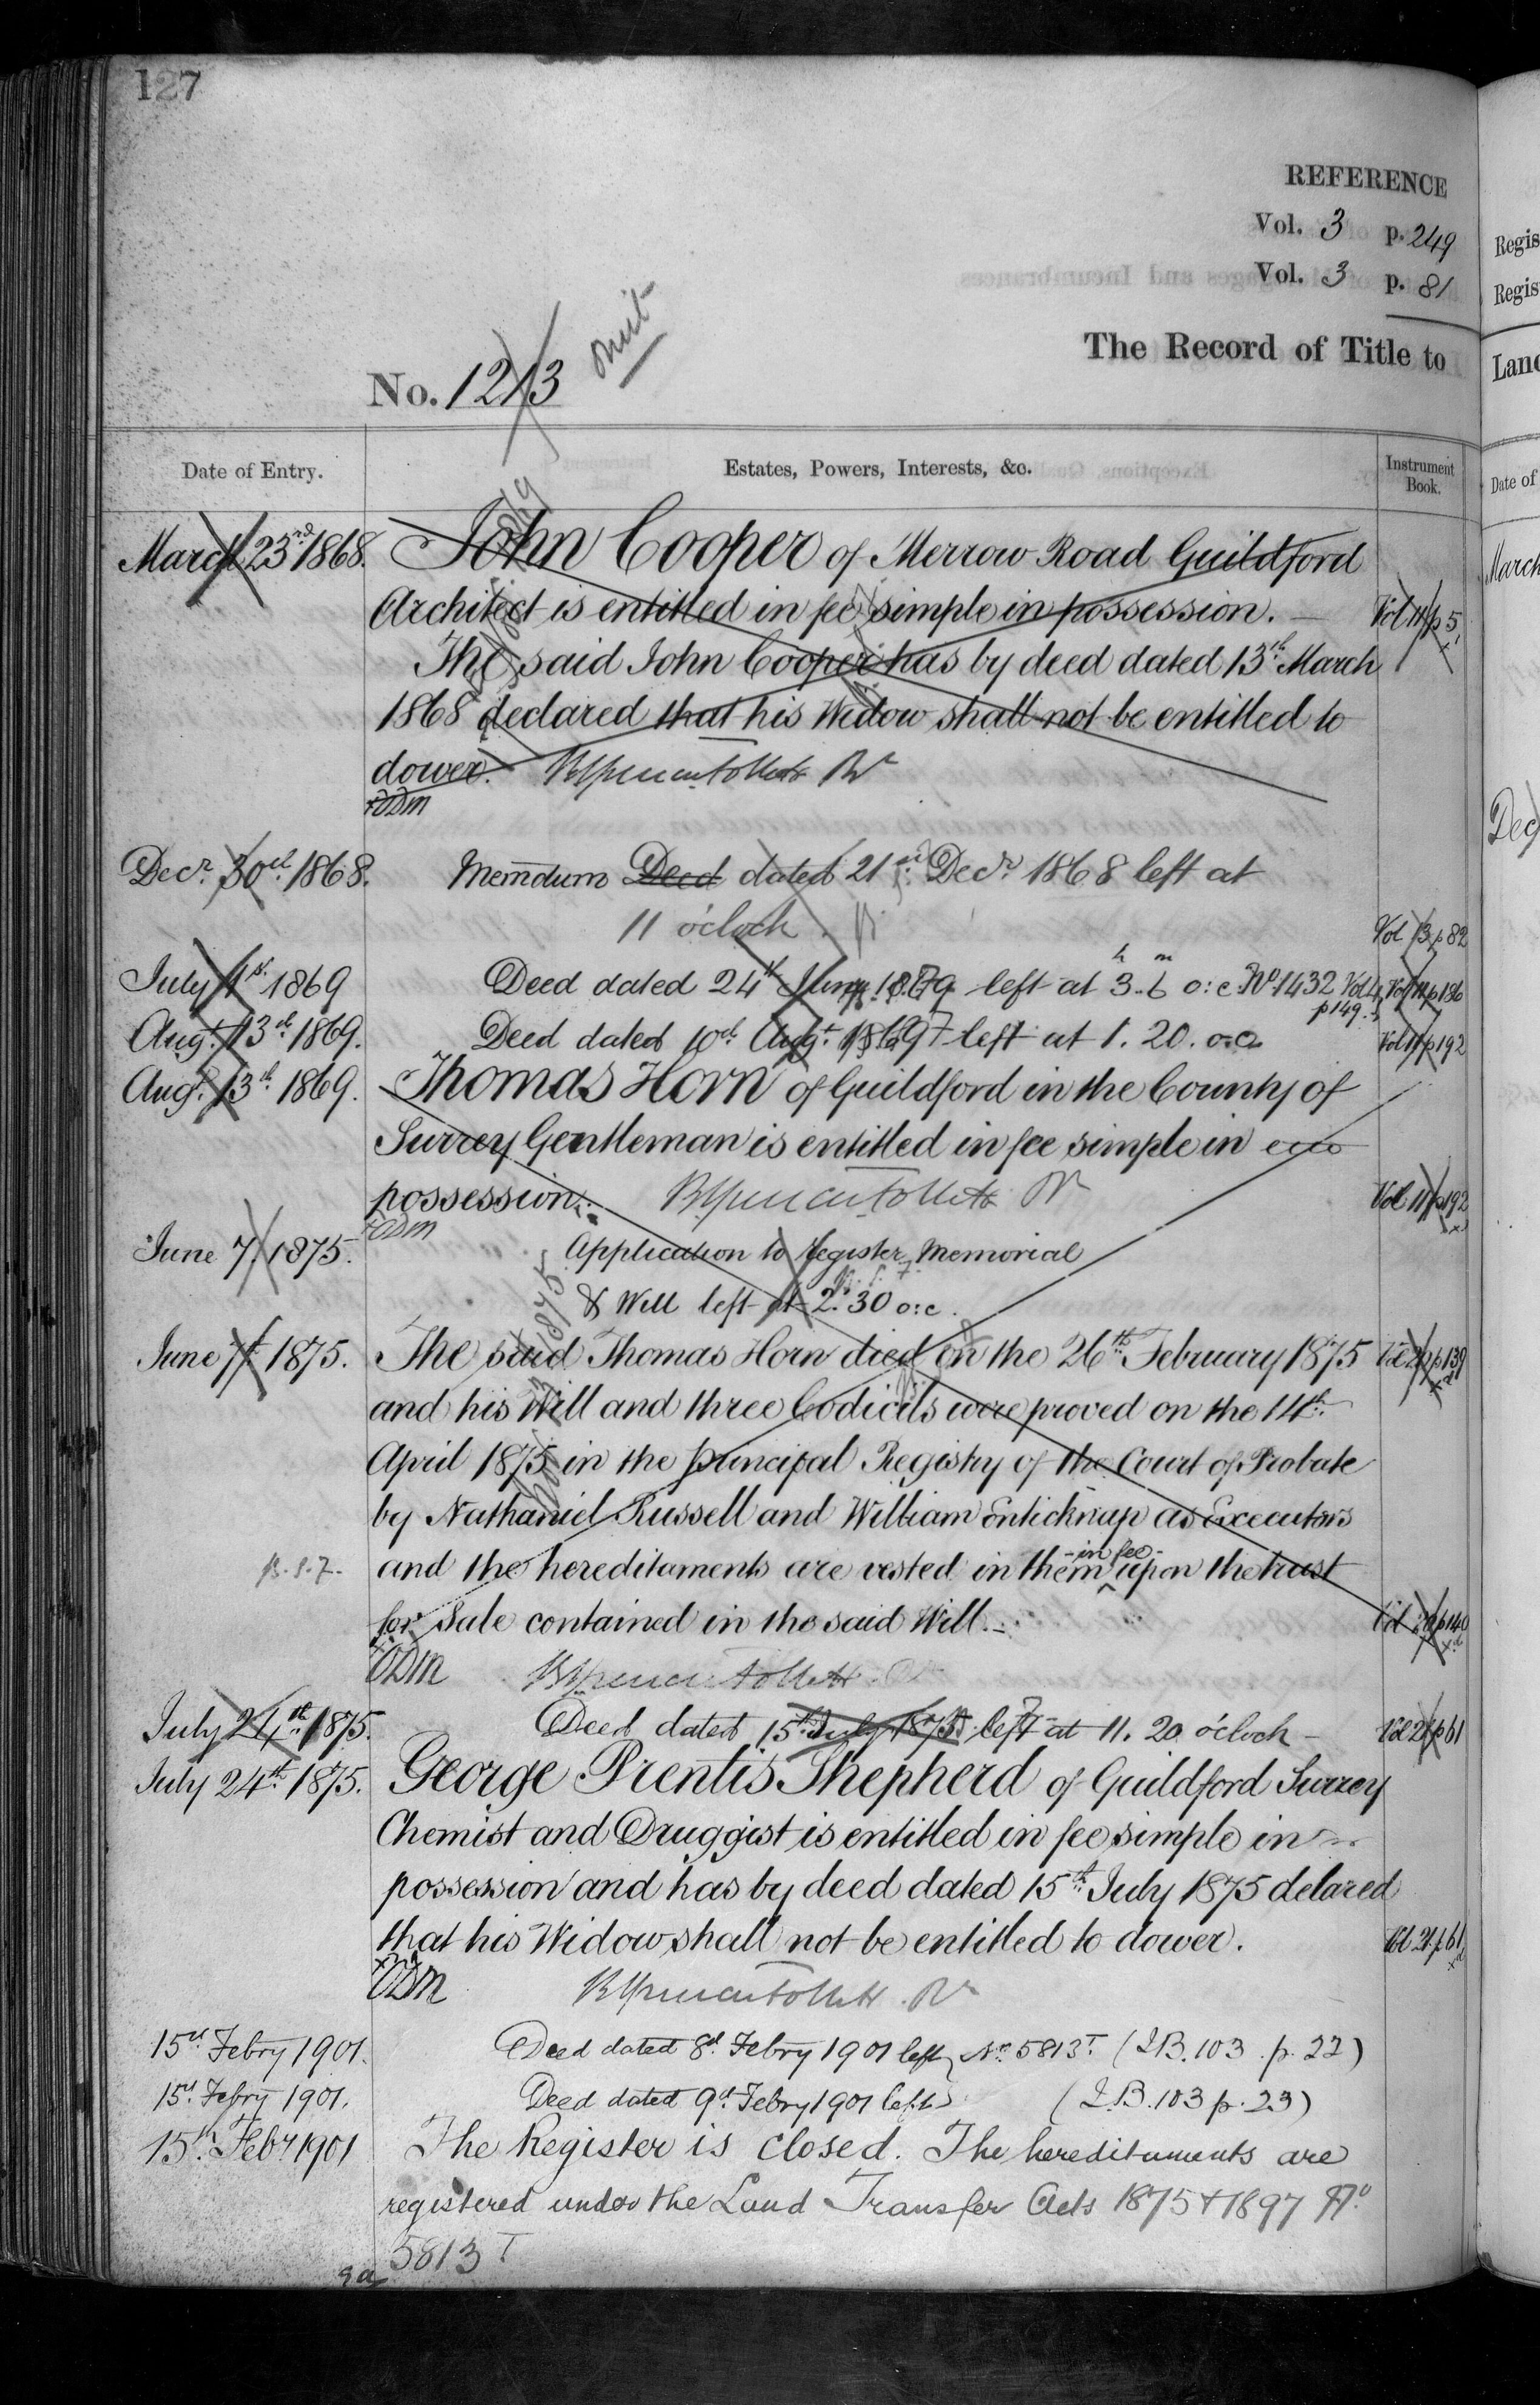 127
REFERENCE
Vol. 3 p. 249
Vol. 3 p. 81
The Record of Title to
No. 1213 omit
Date of Entry. Estates, Powers, Interests, &c. Instrument Book.
March 23rd 1868. John Cooper of Merrow Road Guildford
Architect is entitled in fee simple in possession. — Vol 11 p 5
The said John Cooper has by deed dated 13th March
1868 declared that his Widow shall not be entitled to
dower.
ODM
Decr. 30th 1868. Memdum Deed dated 21st Decr 1868 left at
11 o'clock. Vol 13 p 82
July 1st 1869 Deed dated 24th June 1869 left at 3h. 6m o:c No 1432 Vol 4 p 149. Vol 11 p 186
Augt. 13th 1869. Deed dated 10th Augt. 1869 left at 1. 20. o:c Vol 11 p 192
Augt. 13th 1869. Thomas Horn of Guildford in the County of
Surrey Gentleman is entitled in fee simple in
possession. Vol 11 p 192
ODM
June 7. 1875. Application to register Memorial
& Will left at 2. 30 o:c.
June 7th 1875. The said Thomas Horn died on the 26th February 1875
and his Will and three Codicils were proved on the 14th
April 1875 in the principal Registry of the Court of Probate
by Nathaniel Russell and William Enticknap as Executors
and the hereditaments are vested in them in fee upon the trust
for Sale contained in the said Will.
ODM
July 24th 1875. Deed dated 15th July 1875 left at 11. 20 o'clock — Vol 21 p 61
July 24th 1875. George Prentis Shepherd of Guildford Surrey
Chemist and Druggist is entitled in fee simple in
possession and has by deed dated 15th July 1875 delared
that his Widow shall not be entitled to dower. Vol 21 p 61
ODM
15th Febry 1901. Deed dated 8th Febry 1901 left No. 5813T (I.B. 103. p. 22)
15th Febry 1901. Deed dated 9th Febry 1901 left (I.B. 103 p. 23)
15th Feby 1901 The Register is closed. The hereditaments are
registered under the Land Transfer Acts 1875 & 1897 No
5813 T
Regis
Regis
Land
Date of
March
Dec